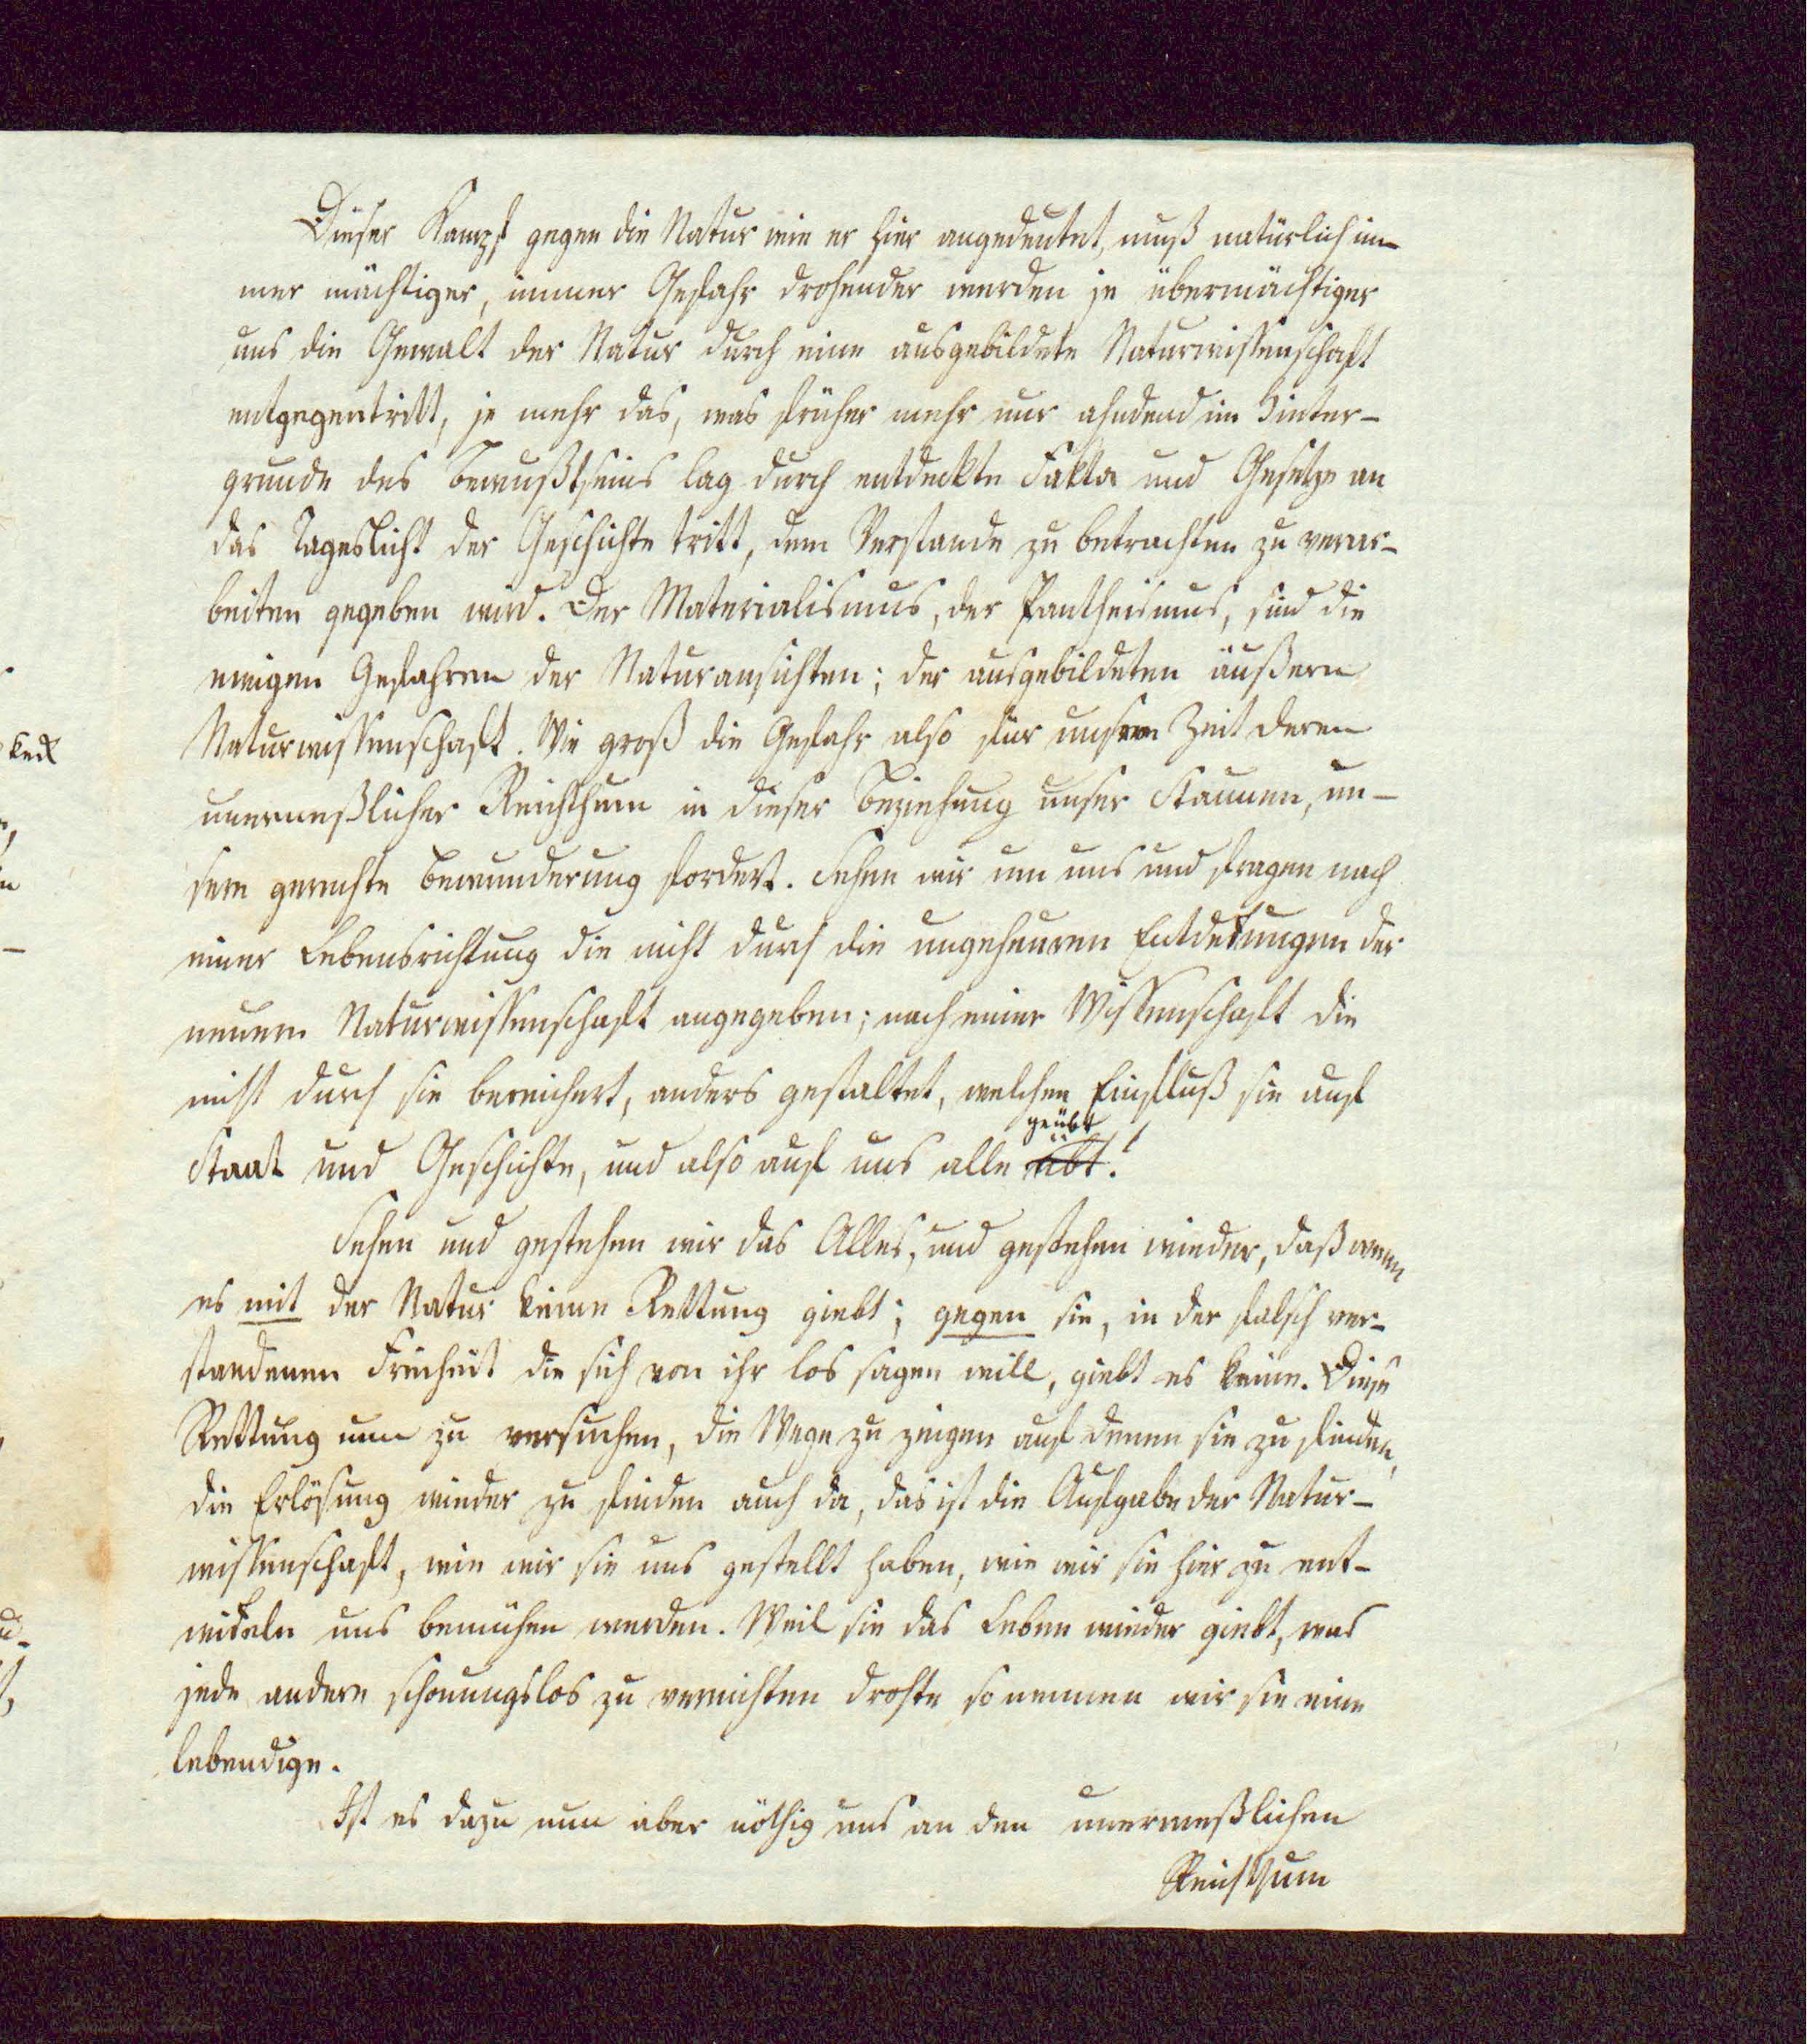 Dieser Kampf gegen die Natur wie er hier angedeutet, muß natürlich im-
mer mächtiger, immer Gefahr drohender werden je übermächtiger
uns die Gewalt der Natur durch eine ausgebildete Naturwissenschaft
entgegentritt, je mehr das, was früher mehr nur ahndend im Hinter-
grunde des Bewußtseins lag durch entdeckte Fakta und Gesetze an
das Tageslicht der Geschichte tritt, dem Verstande zu betrachten zu verar-
beiten gegeben wird. Der Materialismus, der Pantheismus, sind die
ewigen Gefahren der Naturansichten; der ausgebildeten äußern
Naturwissenschaft. Wie groß die Gefahr also für unsere Zeit deren
unermeßlicher Reichthum in dieser Beziehung unser Staunen, un-
sere gerechte Bewunderung fordert. Sehen wir um uns und fragen nach
einer Lebensrichtung die nicht durch die ungeheuren Entdekungen der
neuern Naturwissenschaft angegeben; nach einer Wissenschaft die
nicht durch sie bereichert, anders gestaltet, welchen Einfluß sie auf
geübt
Staat und Geschichte, und also auf uns alle übt!
Sehen und gestehen wir das Alles, und gestehen wieder, daß wenn
es mit der Natur keine Rettung giebt; gegen sie, in der falsch ver-
standenen Freiheit die sich von ihr los sagen will, giebt es keine. Diese
Rettung nun zu versuchen, die Wege zu zeigen auf denen sie zu finden,
die Erlösung wieder zu finden auch da, das ist die Aufgabe der Natur-
wissenschaft, wie wir sie uns gestellt haben, wie wir sie hier zu ent-
wikeln uns bemühen werden. Weil sie das Leben wieder giebt, was
jede andere schonungslos zu vernichten drohte so nennen wir sie eine
lebendige.
Ist es dazu nun aber nöthig uns an den unermeßlichen
Reichthum